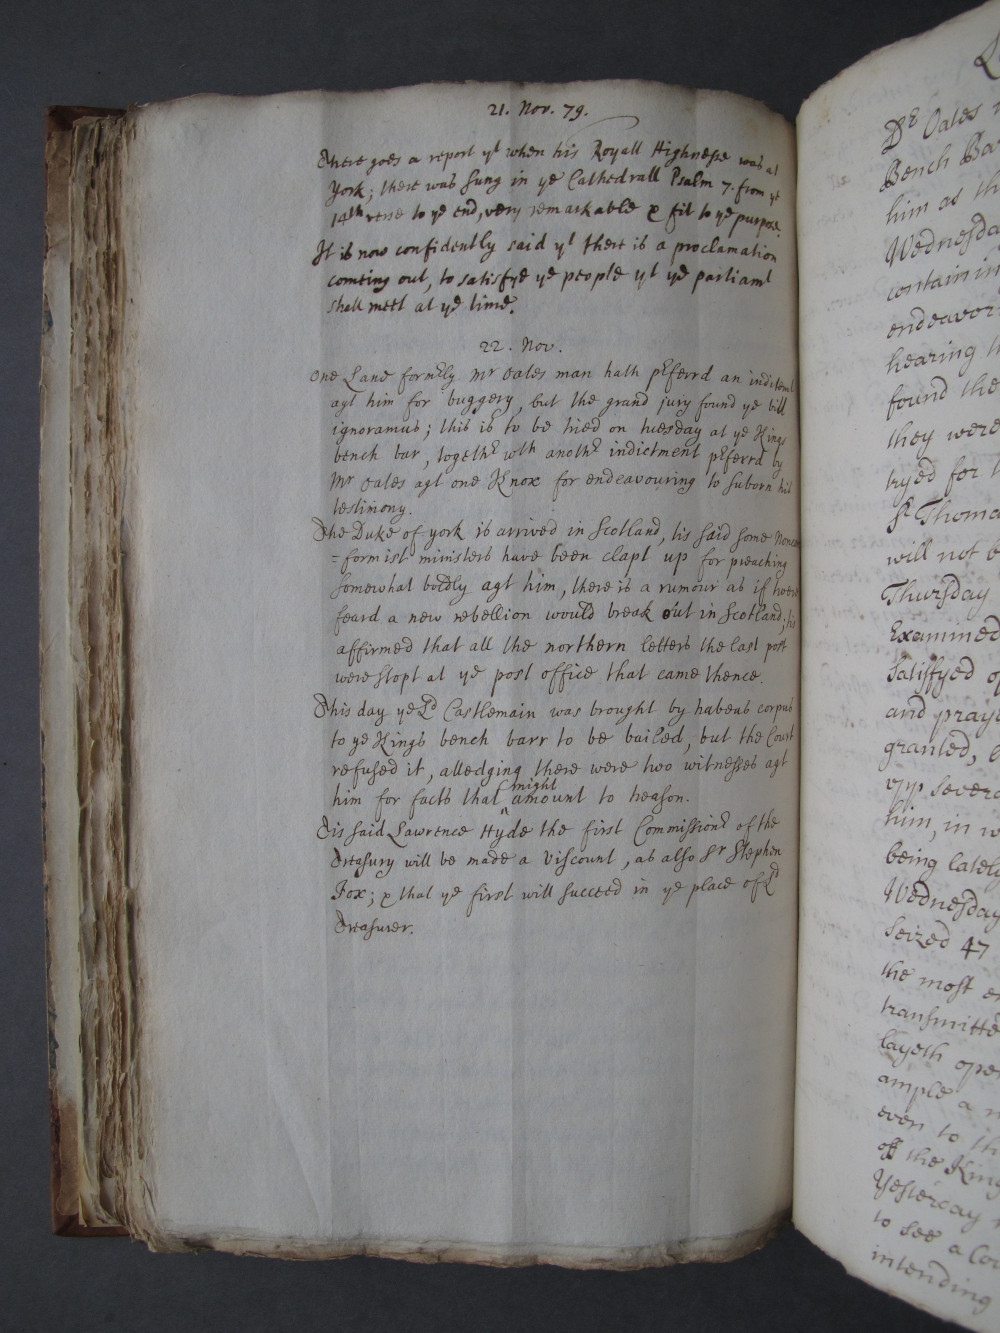 21. Nov. 79.
There goes a report yt when his Royall Highnesse was at
York; there was sung in ye Cathedrall Psalm 7. from ye
14th verse to ye end, very remarkable & fit to ye purpose.
It is now confidently said yt there is a proclamation
comeing out, to satisfye ye people yt ye parliamt
shall meet at ye time.
22. Nov.
One Lane formerly Mr Oates man hath pferrd an inditemt
agt him for buggery, but the grand jury found ye bill
ignoramus; this is to be tried on tuesday at ye Kings
bench bar, togethr wth anothr indictment pferrd by
Mr Oates agt one Knox for endeavouring to suborn his
testimony.
The Duke of york is arrived in Scotland, tis said some noncon
=formist ministers have been clapt up for preaching
somewhat boldly agt him, there is a rumour as if twere
feard a new rebellion would break out in Scotland; tis
affirmed that all the northern letters the last post
were stopt at ye post office that came thence.
This day ye Ld Castlemain was brought by habeas corpus
to ye Kings bench barr to be bailed, but the Court
refused it, alledging there were two witnesses agt
him for facts that might amount to treason.
Tis said Lawrence Hyde the first Commissionr of the
Treasury will be made a Viscount, as also Sr Stephen
Fox; & that ye first will succeed in ye place of Ld
Treasurer.
Dr Oates
Bench Bar
him as th
Wednesda
containin
endeavor
hearing
found the
they were
tryed for
Sr Thoma
will not b
Thursday
Examined
satisfyed of
and praye
granted,
severa
him, in w
being lately
Wednesday
seized 47
the most e
transmitte
layeth ope
ample a
even to th
off the King
Yesterday
to see a Co
intending